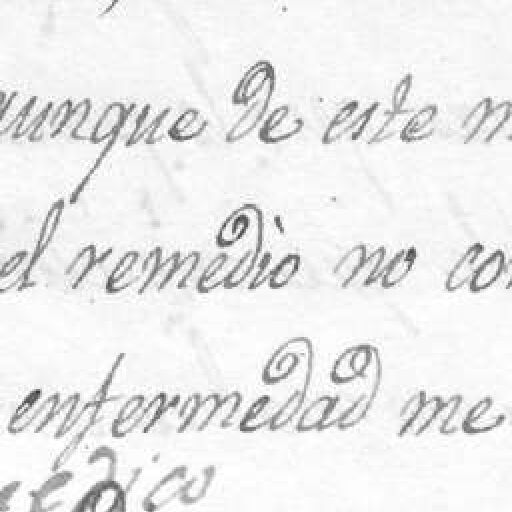 aunque de este
el remedio no
enfermedad me
medico